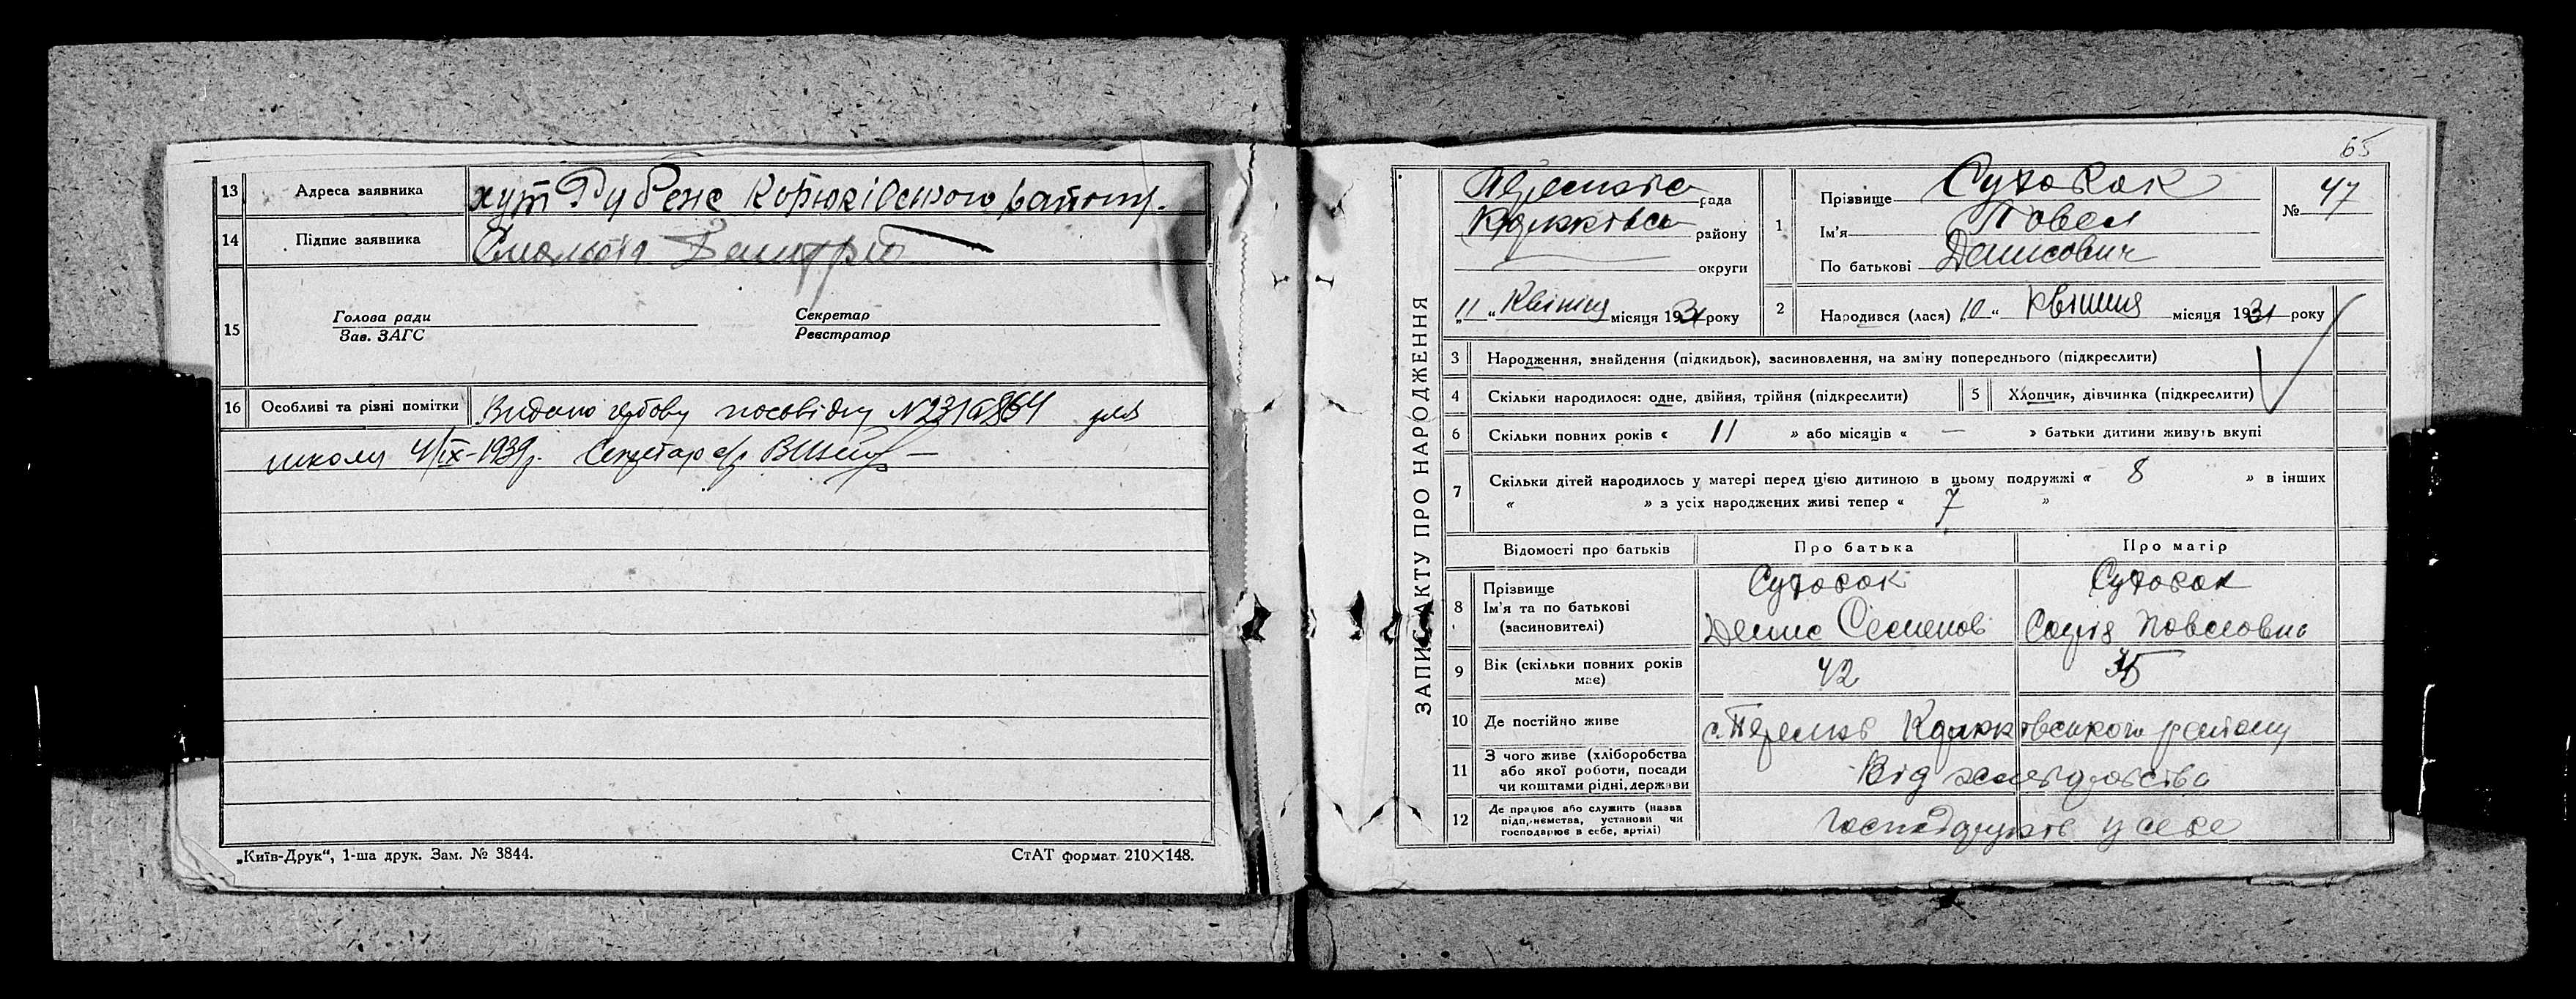 13 Адреса заявника хут Рубене Корюківського району.
14 Підпис заявника Дмитро
15 Голова ради Секретар
Зав. ЗАГС Реєстратор
16 Особливі та різні помітки Видано посвідку для
школи 4/IX-1939р. Секретар с/р
„Київ-Друк“, 1-ша друк. Зам. № 3844. СтАТ формат 210×148.
65
ЗАПИС АКТУ ПРО НАРОДЖЕННЯ
рада
району
округи
„11“ Квітня місяця 1931 року
1 Прізвище
Ім'я Павел
По батькові Данисович
№ 47
2 Народився (лася) „10“ Квітня місяця 1931 року
3 Народження, знайдення (підкидьок), засиновлення, на зміну попереднього (підкреслити)
4 Скільки народилося: одне, двійня, трійня (підкреслити) 5 Хлопчик, дівчинка (підкреслити)
6 Скільки повних років « 11 » або місяців « — » батьки дитини живуть вкупі
7 Скільки дітей народилось у матері перед цією дитиною в цьому подружжі « 8 » в інших
« » з усіх народжених живі тепер « 7 »
Відомості про батьків Про батька Про матір
8 Прізвище
Ім'я та по батькові
(засиновителі) Денис Семенов Софія Повловна
9 Вік (скільки повних років
має) 42 35
10 Де постійно живе с. Перелюб Корюківського району
11 З чого живе (хліборобства
або якої роботи, посади
чи коштами рідні, держави Від
12 Де працює або служить (назва
підприємства, установи чи
господарює в себе, артілі) Господарують у себе